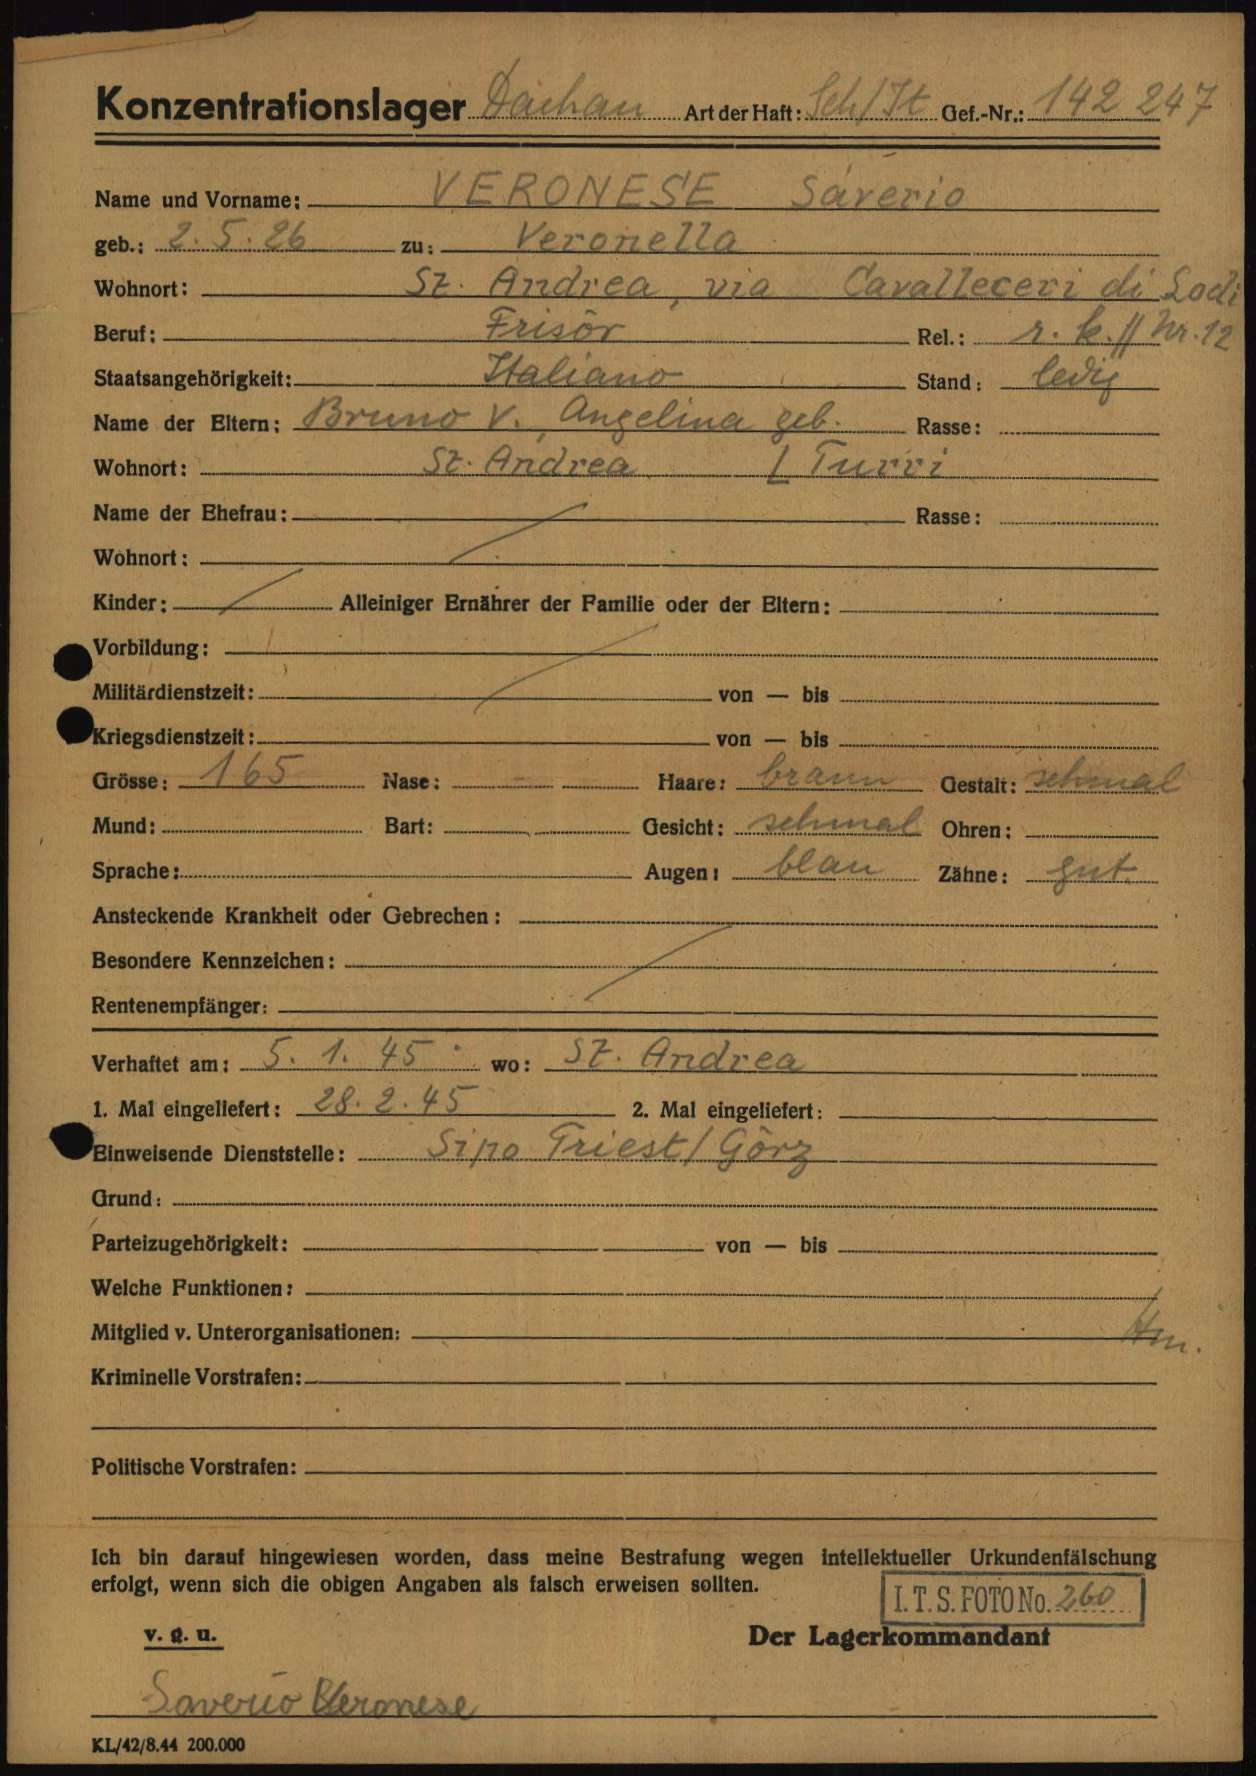 Konzentrationslager Dachau Art der Haft: Sch/It Gef.-Nr.: 142 247
Name und Vorname: VERONESE Saverio
geb.: 2.5.26 zu: Veronella
Wohnort: St. Andrea, via Cavalleceri di Lodi
Beruf: Frisör Rel.: r. k. // Nr. 12
Staatsangehörigkeit: Italiano Stand: ledig
Name der Eltern: Bruno V., Angelina geb. Rasse:
Wohnort: St. Andrea L Turri
Name der Ehefrau: Rasse:
Wohnort:
Kinder: Alleiniger Ernährer der Familie oder der Eltern:
Vorbildung:
Militärdienstzeit: von — bis
Kriegsdienstzeit: von — bis
Grösse: 165 Nase: - Haare: braun Gestalt: schmal
Mund: Bart: Gesicht: schmal Ohren:
Sprache: Augen: blau Zähne: gut.
Ansteckende Krankheit oder Gebrechen:
Besondere Kennzeichen:
Rentenempfänger:
Verhaftet am: 5. 1. 45 wo: St. Andrea
1. Mal eingeliefert: 28.2.45 2. Mal eingeliefert:
Einweisende Dienststelle: Sipo Triest/Görz
Grund:
Parteizugehörigkeit: von — bis
Welche Funktionen:
Mitglied v. Unterorganisationen:
Kriminelle Vorstrafen:
Politische Vorstrafen:
Ich bin darauf hingewiesen worden, dass meine Bestrafung wegen intellektueller Urkundenfälschung
erfolgt, wenn sich die obigen Angaben als falsch erweisen sollten.
I.T.S. FOTO No. 260
v. g. u. Der Lagerkommandant
Saverio Veronese
KL/42/8.44 200.000